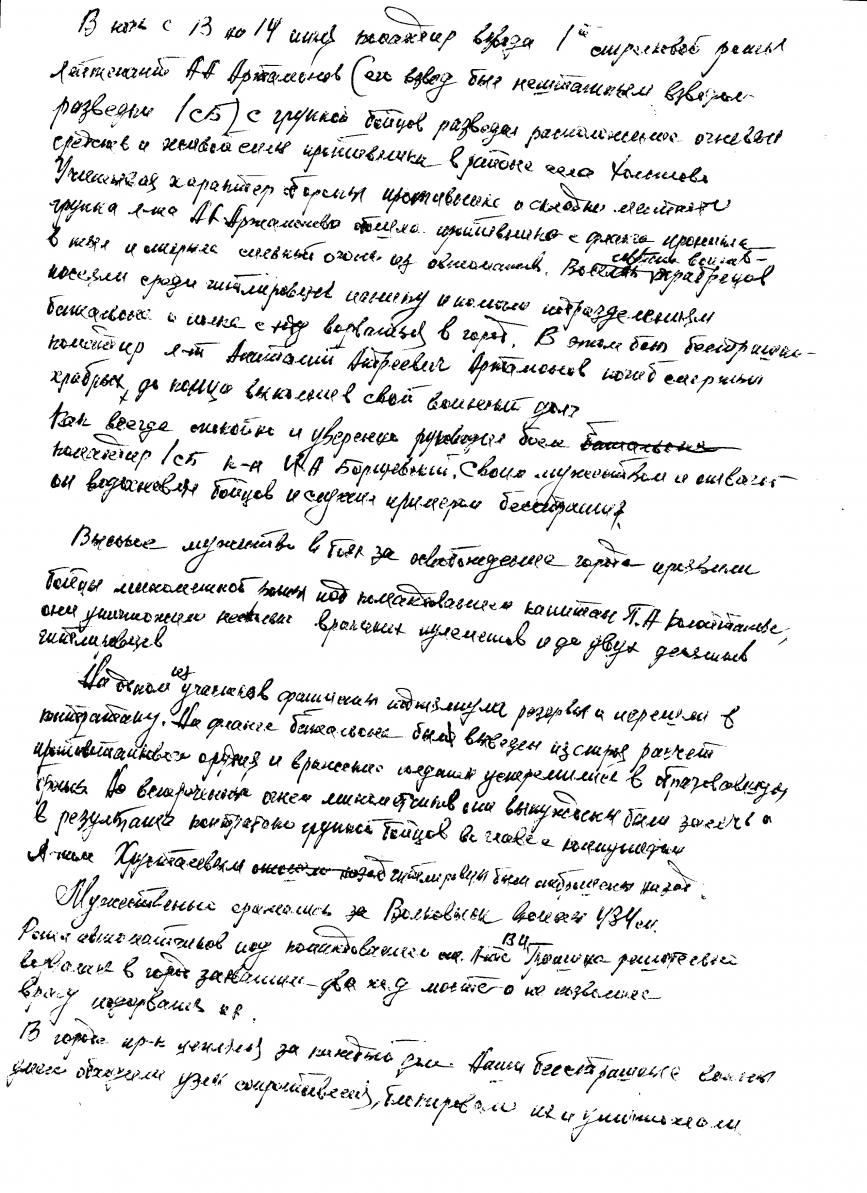 В ночь с 13 на 14 июля командир взвода 1й стрелковой роты
лейтенант А А Артамонов (его взвод был нештатным взводом
разведки 1СБ) с группой бойцов разведал расположение огневых
средств и живой силы противника в районе села
Учитывая характер обороны противника и складки местности
группа л-та АА Артамонова обошла противника с фланга проникла
в тыл и открыла сильный огонь из автоматов. храбрецов
посеяли среди гитлеровцев панику и помогли подразделениям
батальона и полка с ходу ворваться в город. В этом бою бесстрашный
командир л-т Анатолий Андреевич Артамонов погиб смертью
храбрых, до конца выполнив свой воинский долг
Как всегда спокойно и уверенно руководил боем батальона
командир 1СБ к-н И А Борщевский. Своим мужеством и отвагой
он вдохновлял бойцов и служил примером бесстрашия.
Высокое мужество в боях за освобождение города проявили
бойцы минометной роты под командованием капитана П.А
они уничтожили несколько вражеских пулеметов и до двух десятков
гитлеровцев
На одном из участков фашисты подтянули резервы и перешли в
контратаку. На фланге батальона был выведен из строя расчет
противотанкового орудия и вражеские солдаты устремились в образовавшуюся
брешь. Но встреченные огнем минометчиков они вынуждены были залечь а
в результате контратаки группы бойцов во главе с коммунистом
л-том Хрусталевым гитлеровцы были отброшены назад.
Мужественно сражались за Волковыск воины 434 сп.
Рота автоматчиков под командованием ст. л-та ВИ решительно
ворвалась в город захватила два ж.д моста и не позволила
врагу подорвать их.
В городе пр-к цеплялся за каждый дом. Наши бесстрашные воины
умело обходили узлы сопротивления, блокировали их и уничтожали